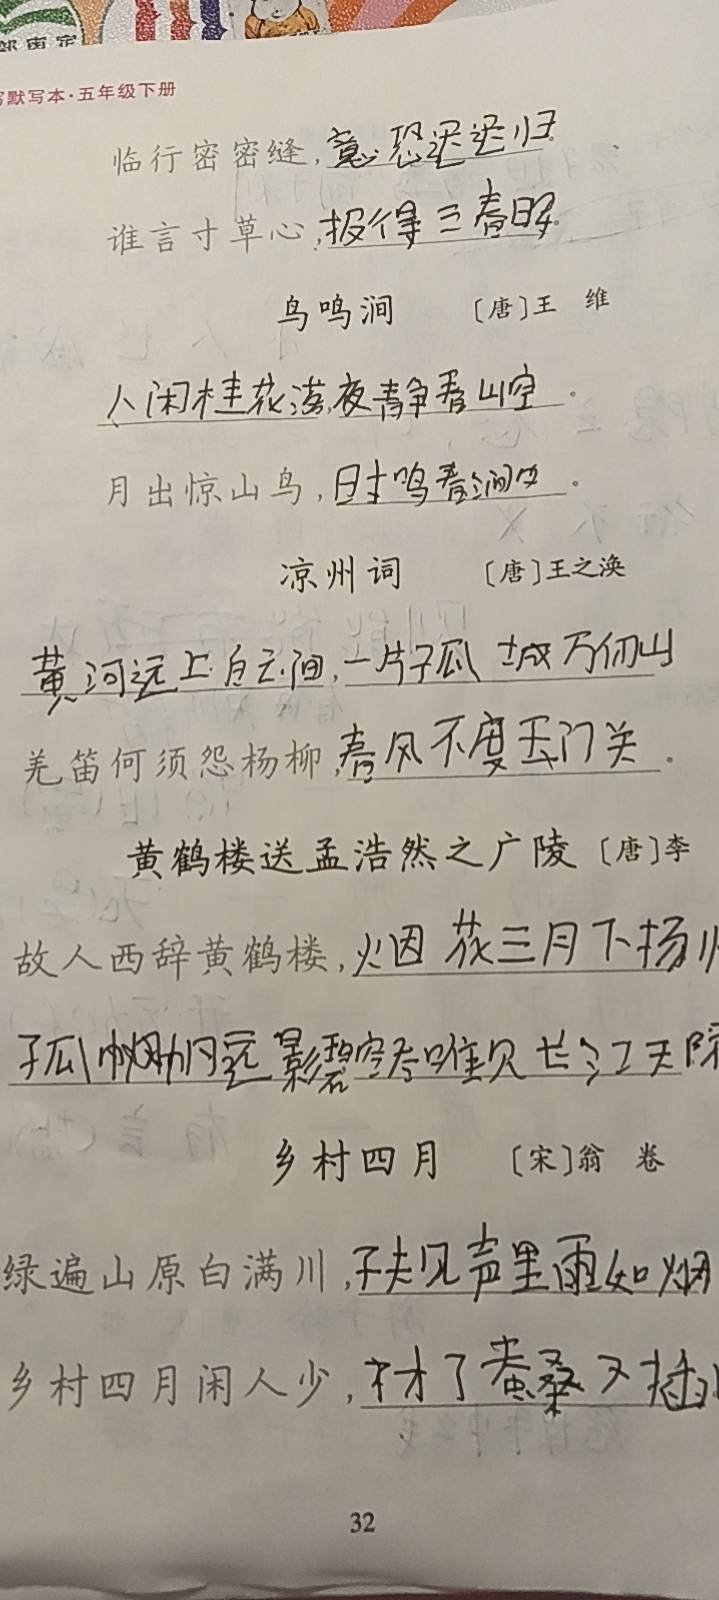 部审定
默写本·五年级下册
临行密密缝,意恐迟迟归。
谁言寸草心,报得三春晖。
鸟鸣涧 〔唐〕王 维
人闲桂花落,夜静春山空。
月出惊山鸟,时鸣春涧中。
凉州词 〔唐〕王之涣
黄河远上白云间,一片孤城万仞山
羌笛何须怨杨柳,春风不度玉门关。
黄鹤楼送孟浩然之广陵〔唐〕李
故人西辞黄鹤楼,烟花三月下扬州
孤帆远影碧空尽唯见长江天际
乡村四月 〔宋〕翁 卷
绿遍山原白满川,子规声里雨如烟
乡村四月闲人少,才了蚕桑又插
32